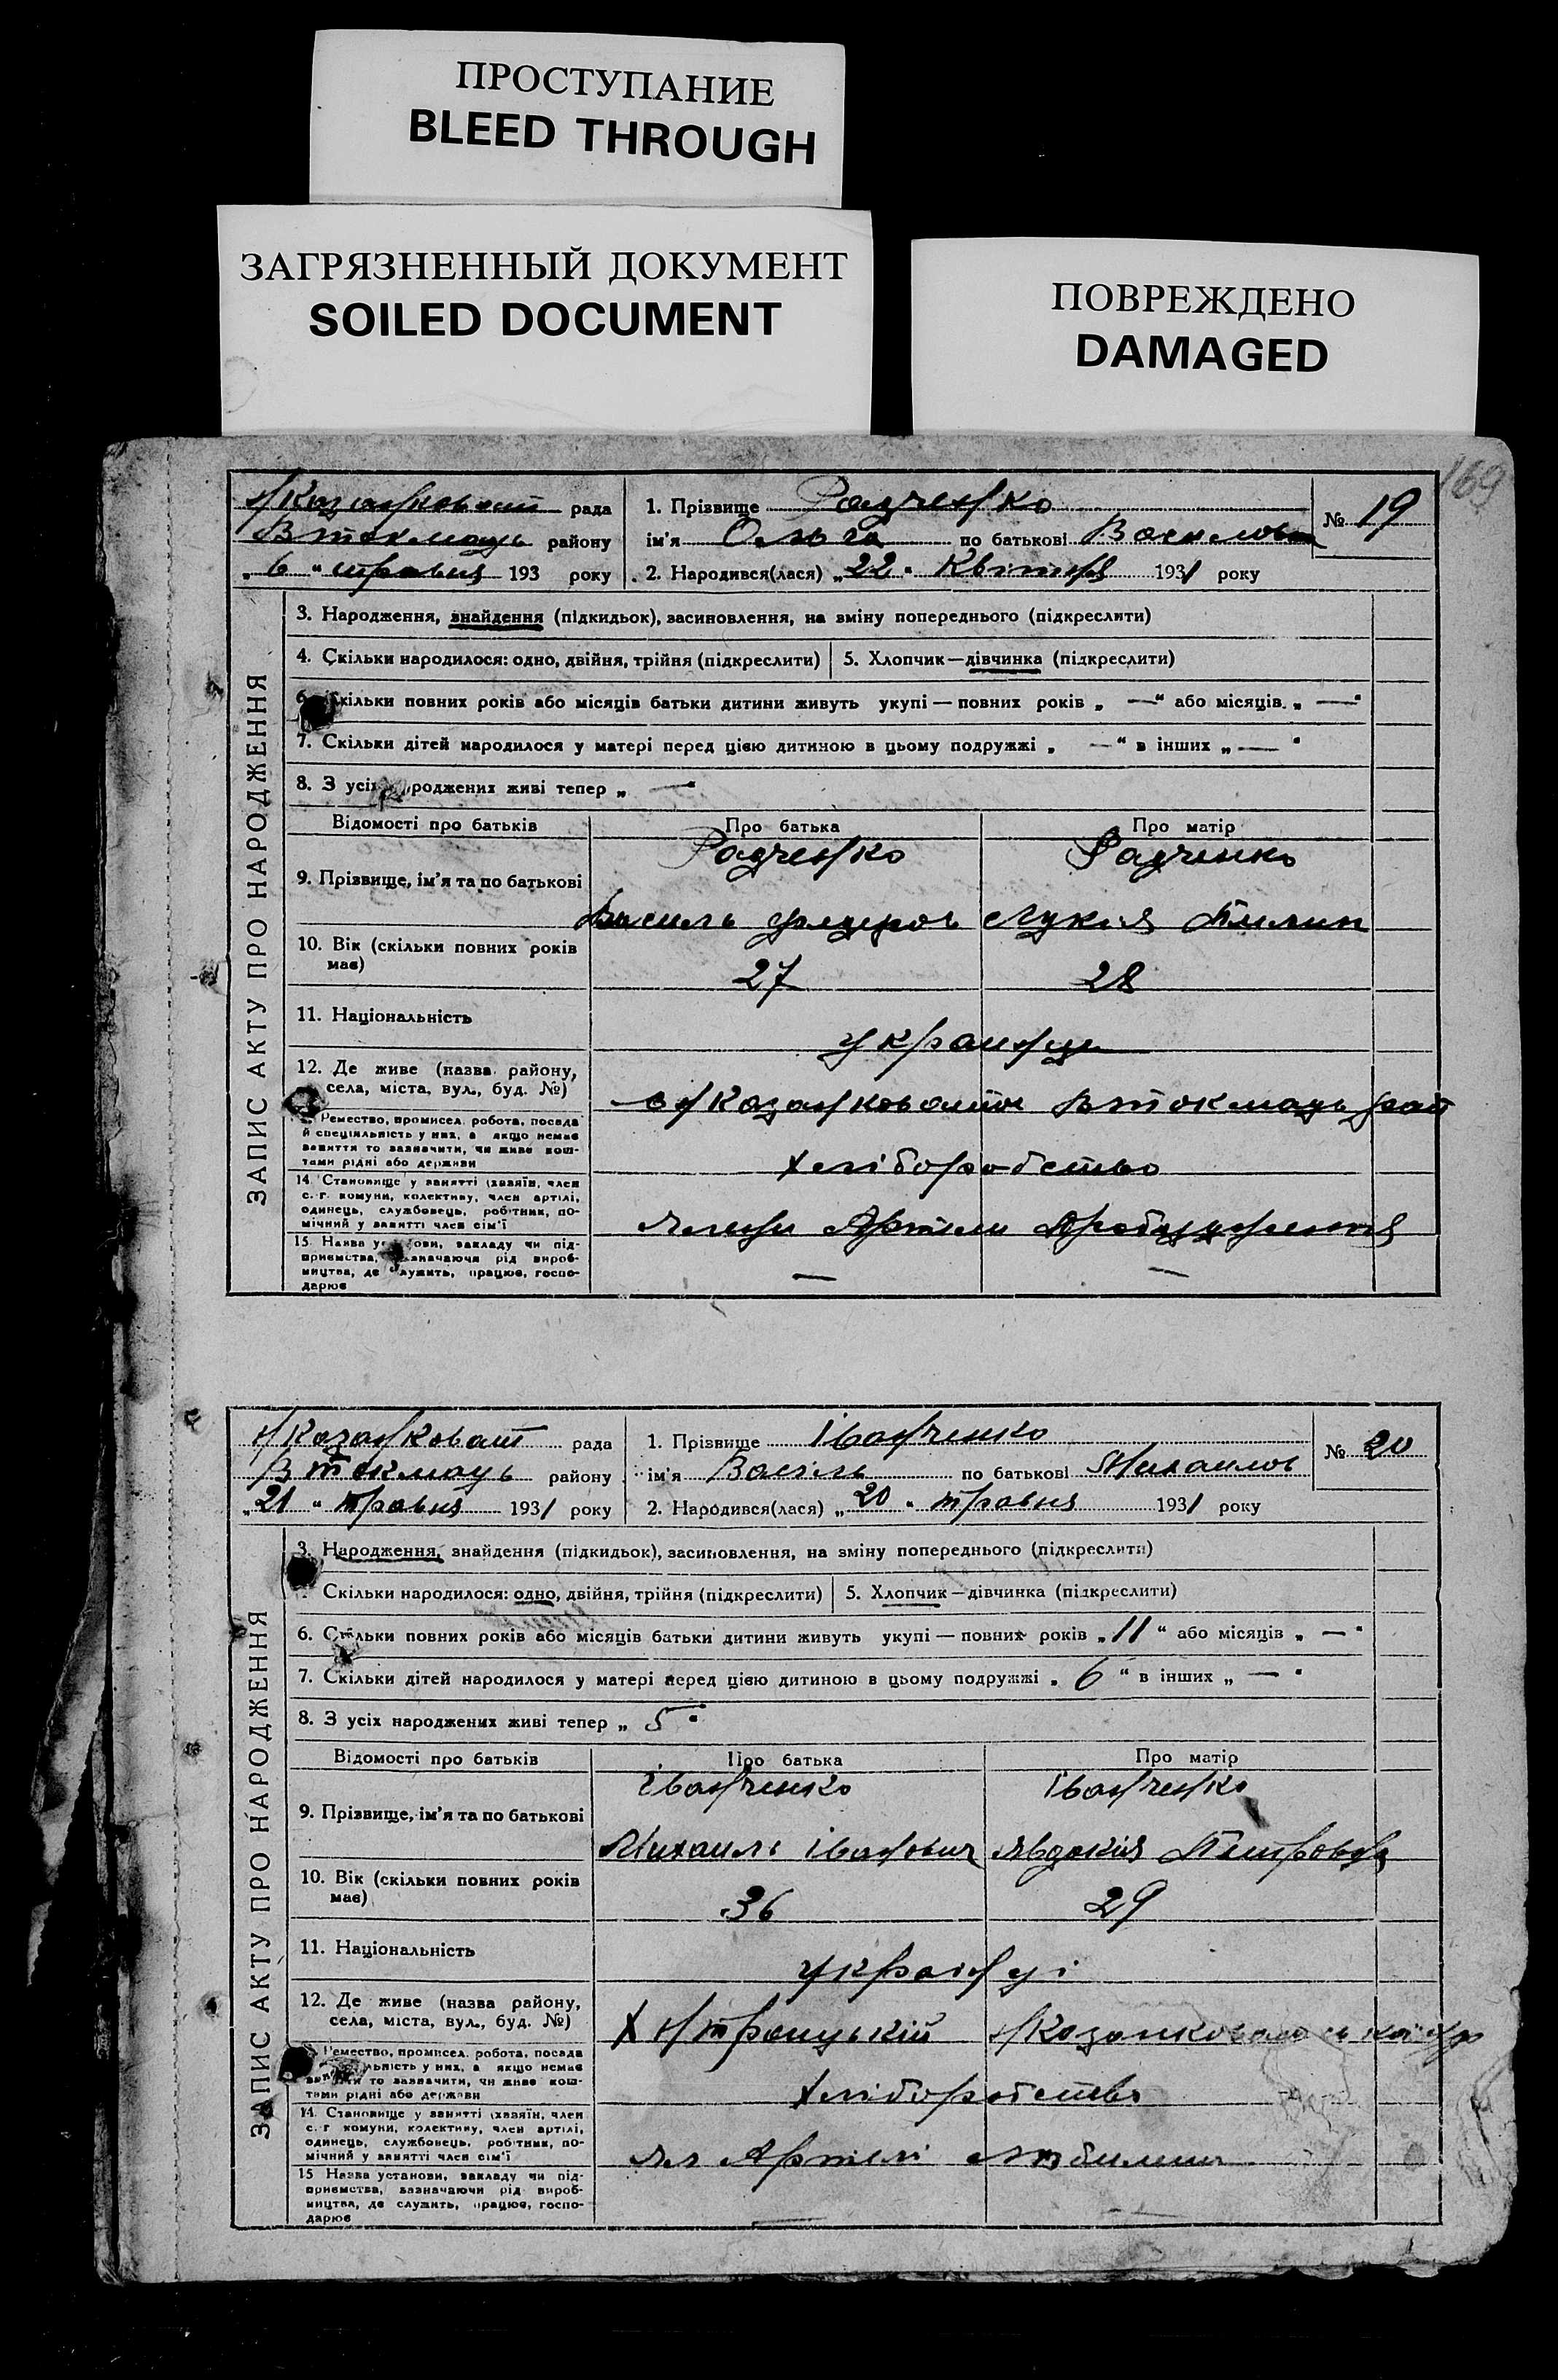 ПРОСТУПАНИЕ
BLEED THROUGH
ЗАГРЯЗНЕННЫЙ ДОКУМЕНТ
SOILED DOCUMENT
ПОВРЕЖДЕНО
DAMAGED
169
рада
1. Прізвище Радченко
№ 19
Втокмаць району
ім'я Ольга по батькові
„6" травня 193 року
2. Народився(лася) „22" Квітня 1931 року
ЗАПИС АКТУ ПРО НАРОДЖЕННЯ
3. Народження, знайдення (підкидьок), засиновлення, на зміну попереднього (підкреслити)
4. Скільки народилося: одно, двійня, трійня (підкреслити) 5. Хлопчик—дівчинка (підкреслити)
6. Скільки повних років або місяців батьки дитини живуть укупі — повних років „ —" або місяців „ —"
7. Скільки дітей народилося у матері перед цією дитиною в цьому подружжі „ —" в інших „ — "
8. З усіх народжених живі тепер „ —"
Відомості про батьків Про батька Про матір
Радченко Радченко
9. Прізвище, ім'я та по батькові
Василь Лукія
10. Вік (скільки повних років має)
27 28
11. Національність
12. Де живе (назва району, села, міста, вул., буд. №)
Ремество, промисел, робота, посада й спеціяльність у них, а якщо немає заняття то зазначити, чи живе коштами рідні або держави
хліборобство
14. Становище у занятті (хазяїн, член с.-г. комуни, колективу, член артілі, одинець, службовець, робітник, помічний у занятті член сім'ї
члени Артели
15. Назва установи, закладу чи підприємства, зазначаючи рід виробництва, де служить, працює, господарює
— —
Нказанковат рада
1. Прізвище Іванченко
№ 20
Втокмаць району
ім'я Василь по батькові Михаилов
„21" травня 1931 року
2. Народився(лася) „20" травня 1931 року
ЗАПИС АКТУ ПРО НАРОДЖЕННЯ
3. Народження, знайдення (підкидьок), засиновлення, на зміну попереднього (підкреслити)
Скільки народилося: одно, двійня, трійня (підкреслити) 5. Хлопчик—дівчинка (підкреслити)
6. Скільки повних років або місяців батьки дитини живуть укупі — повних років „11" або місяців „ —"
7. Скільки дітей народилося у матері перед цією дитиною в цьому подружжі „6" в інших „ — "
8. З усіх народжених живі тепер „ 5"
Відомості про батьків Про батька Про матір
Іванченко Іванченко
9. Прізвище, ім'я та по батькові
Михаиль Іванович Явдокія Петровна
10. Вік (скільки повних років має)
36 29
11. Національність
українці
12. Де живе (назва району, села, міста, вул., буд. №)
Ремество, промисел, робота, посада й спеціяльність у них, а якщо немає заняття то зазначити, чи живе коштами рідні або держави
хліборобство
14. Становище у занятті (хазяїн, член с.-г. комуни, колективу, член артілі, одинець, службовець, робітник, помічний у занятті член сім'ї
чл Артілі
15. Назва установи, закладу чи підприємства, зазначаючи рід виробництва, де служить, працює, господарює
— —